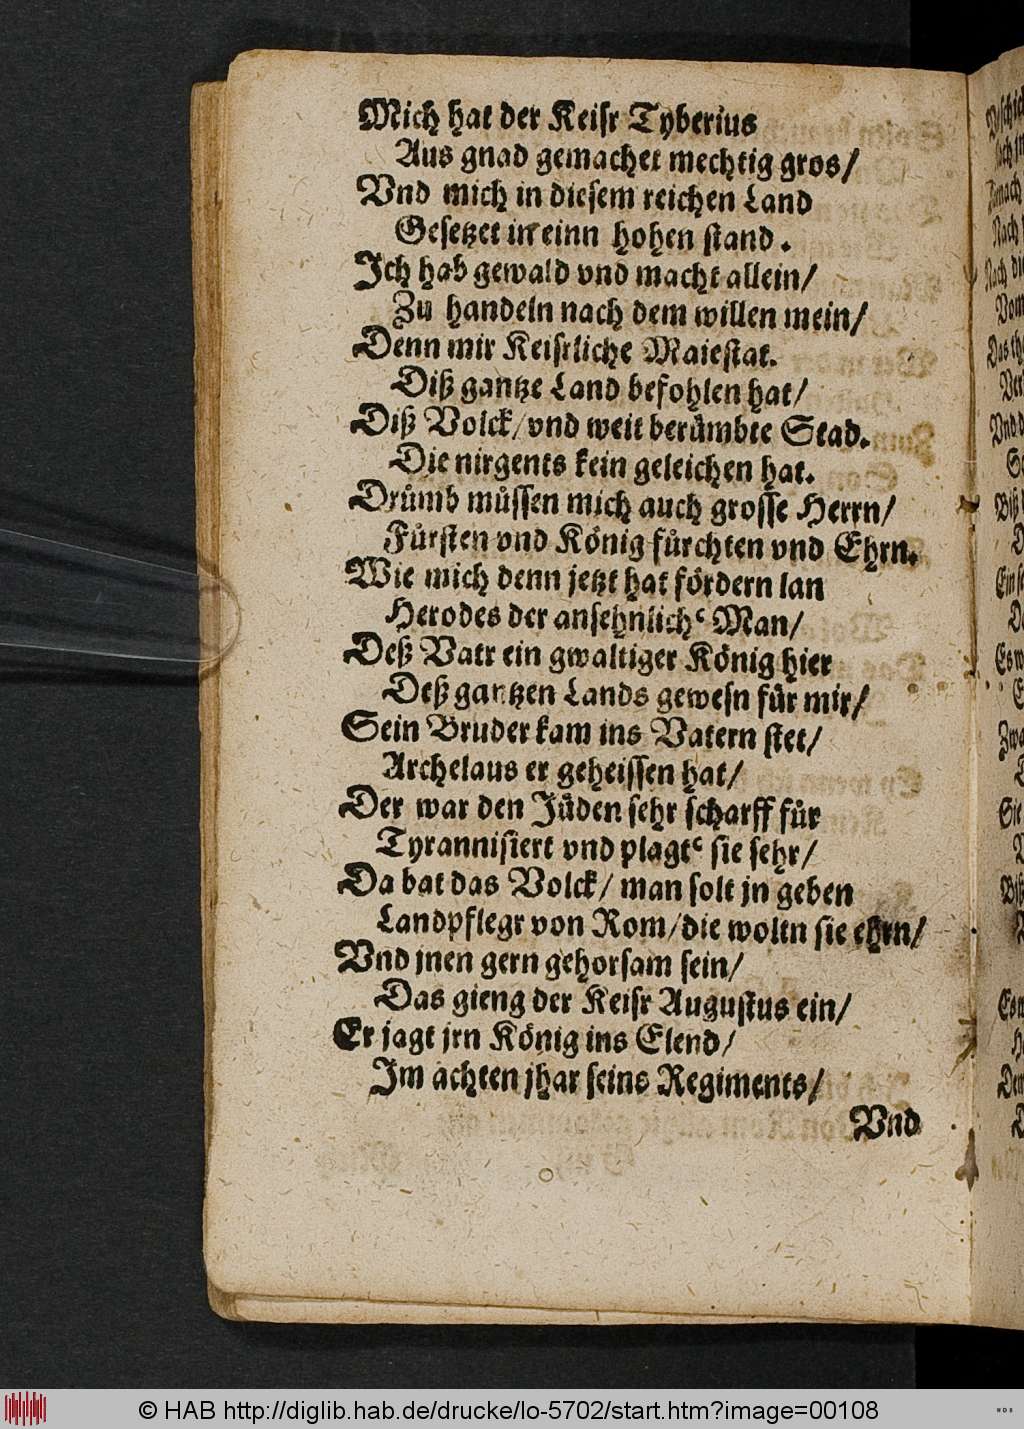 Mich hat der Keisr Tyberius
Aus gnad gemachet mechtig gros/
Vnd mich in diesem reichen Land
Gesetzet in einn hohen stand.
Ich hab gewald vnd macht allein/
Zu handeln nach dem willen mein/
Denn mir Keiserliche Maiestat.
Diß gantze Land befohlen hat/
Diß Volck/vnd weit berümbte Stad.
Die nirgents kein geleichen hat.
Drümb müssen mich auch grosse Herrn/
Fürsten vnd König fürchten vnd Ehrn.
Wie mich denn jetzt hat fördern lan
Herodes der ansehnlich‘ Man/
Deß Vatr ein gwaltiger König hier
Deß gantzen Lands gewesn für mir/
Sein Bruder kam ins Vatern stet/
Archelaus er geheissen hat/
Der war den Jüden sehr scharff für
Tyrannisiert vnd plagt‘ sie sehr/
Da bat das Volck/ man solt jn geben
Landpflegr von Rom/die woltn sie ehrn/
Vnd jnen gern gehorsam sein/
Das gieng der Keisr Augustus ein/
Er jagt jrn König ins Elend/
Im achten jhar seins Regiments/
Vnd
© HAB http://diglib.hab.de/drucke/lo-5702/start.htm?image=00108